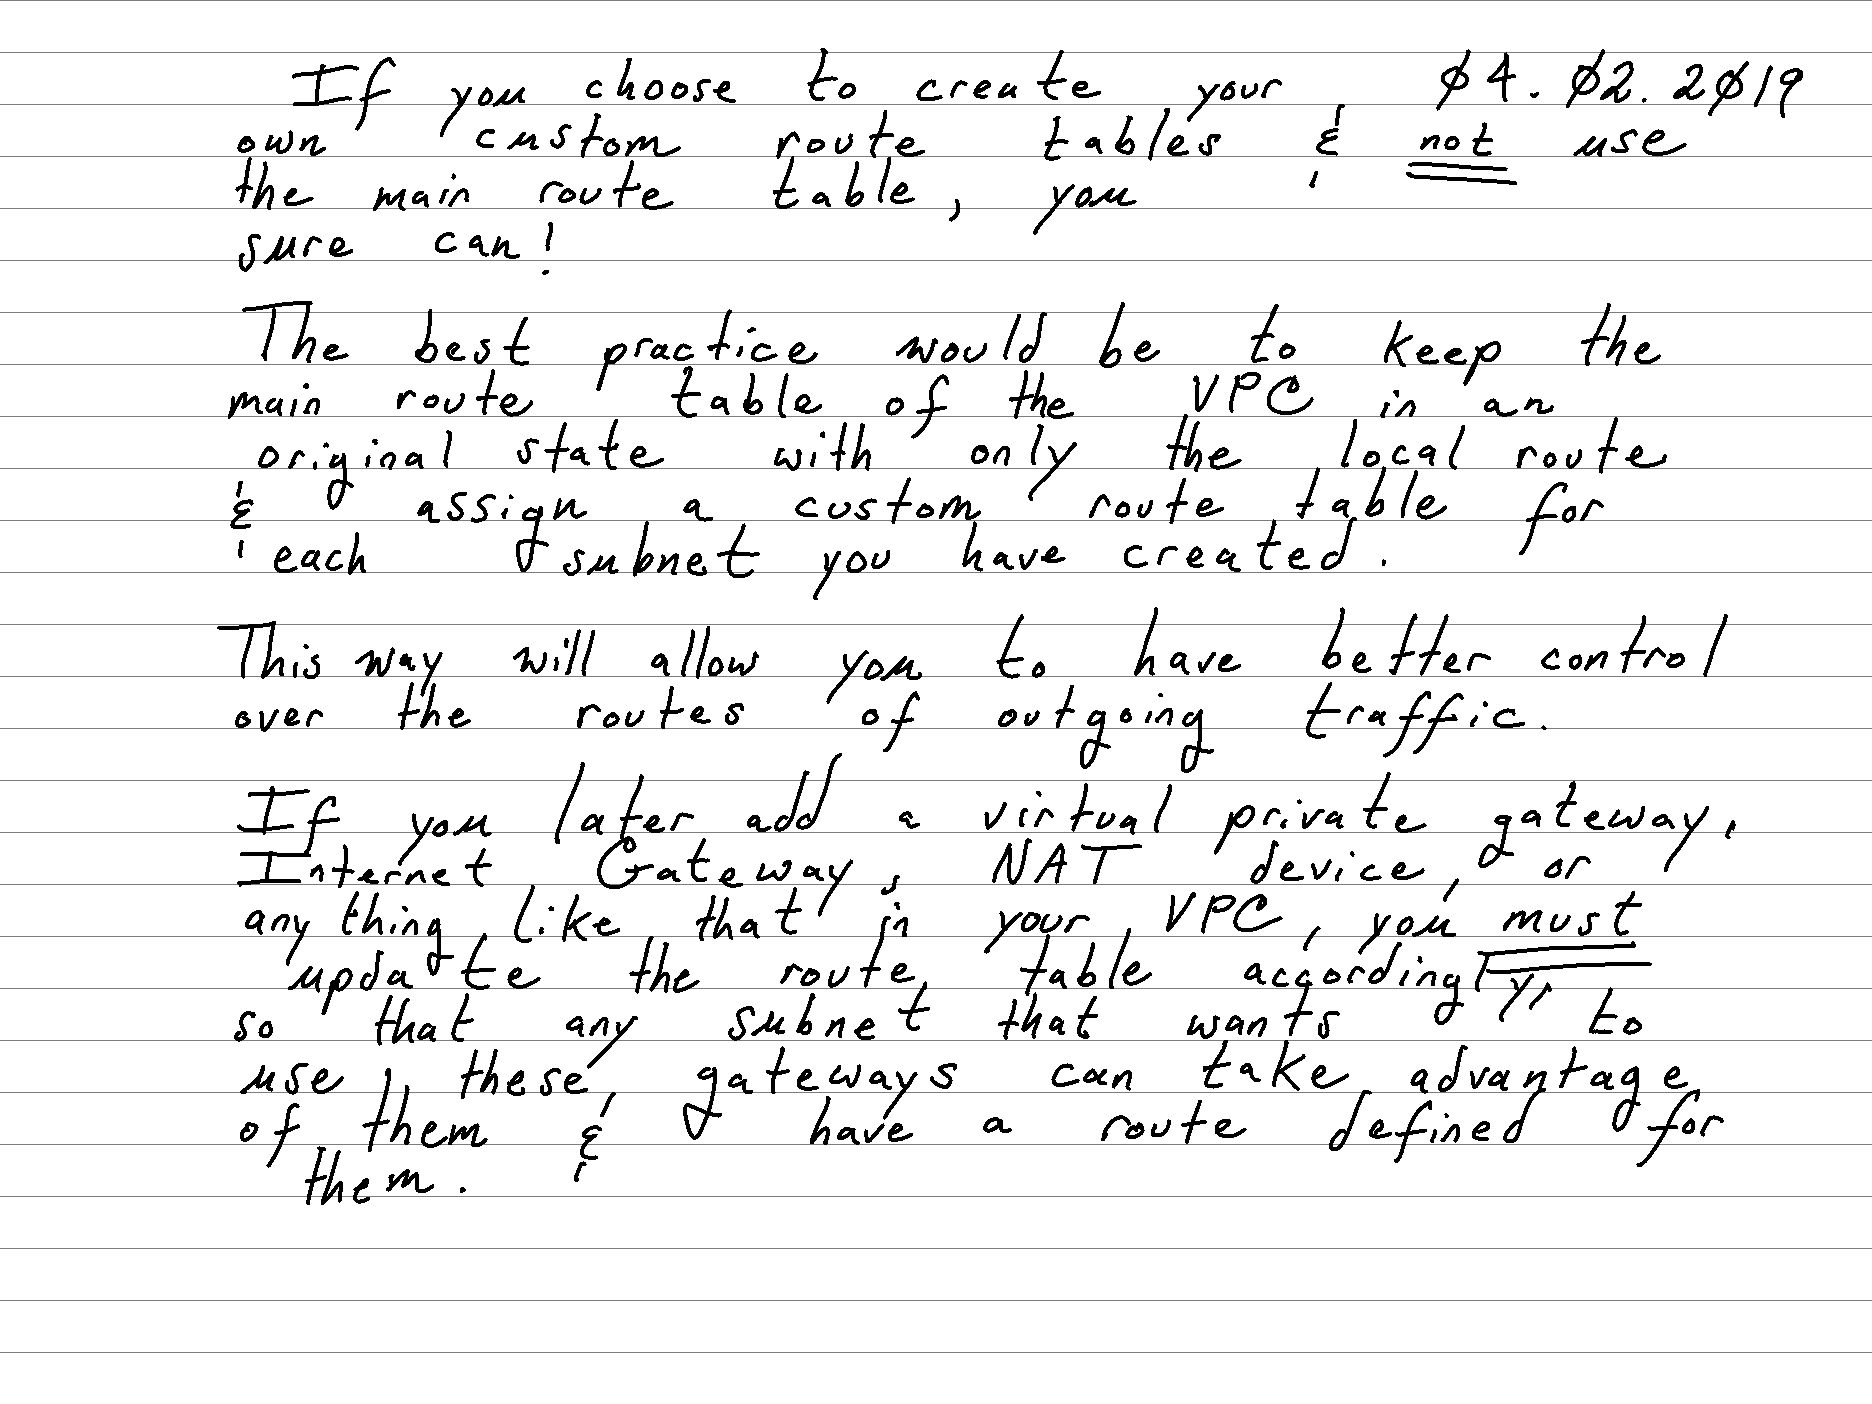 If you choose to create your 04.02.2019
own custom route tables & not use
the main route table, you
sure can!
The best practice would be to keep the
main route table of the VPC in an
original state with only the local route
& assign a custom route table for
each subnet you have created.
This way will allow you to have better control
over the routes of outgoing traffic.
If you later add a virtual private gateway,
Internet Gateway, NAT device, or
anything like that in your VPC, you must
update the route table accordingly,
so that any subnet that wants to
use these gateways can take advantage
of them & have a route defined for
them.